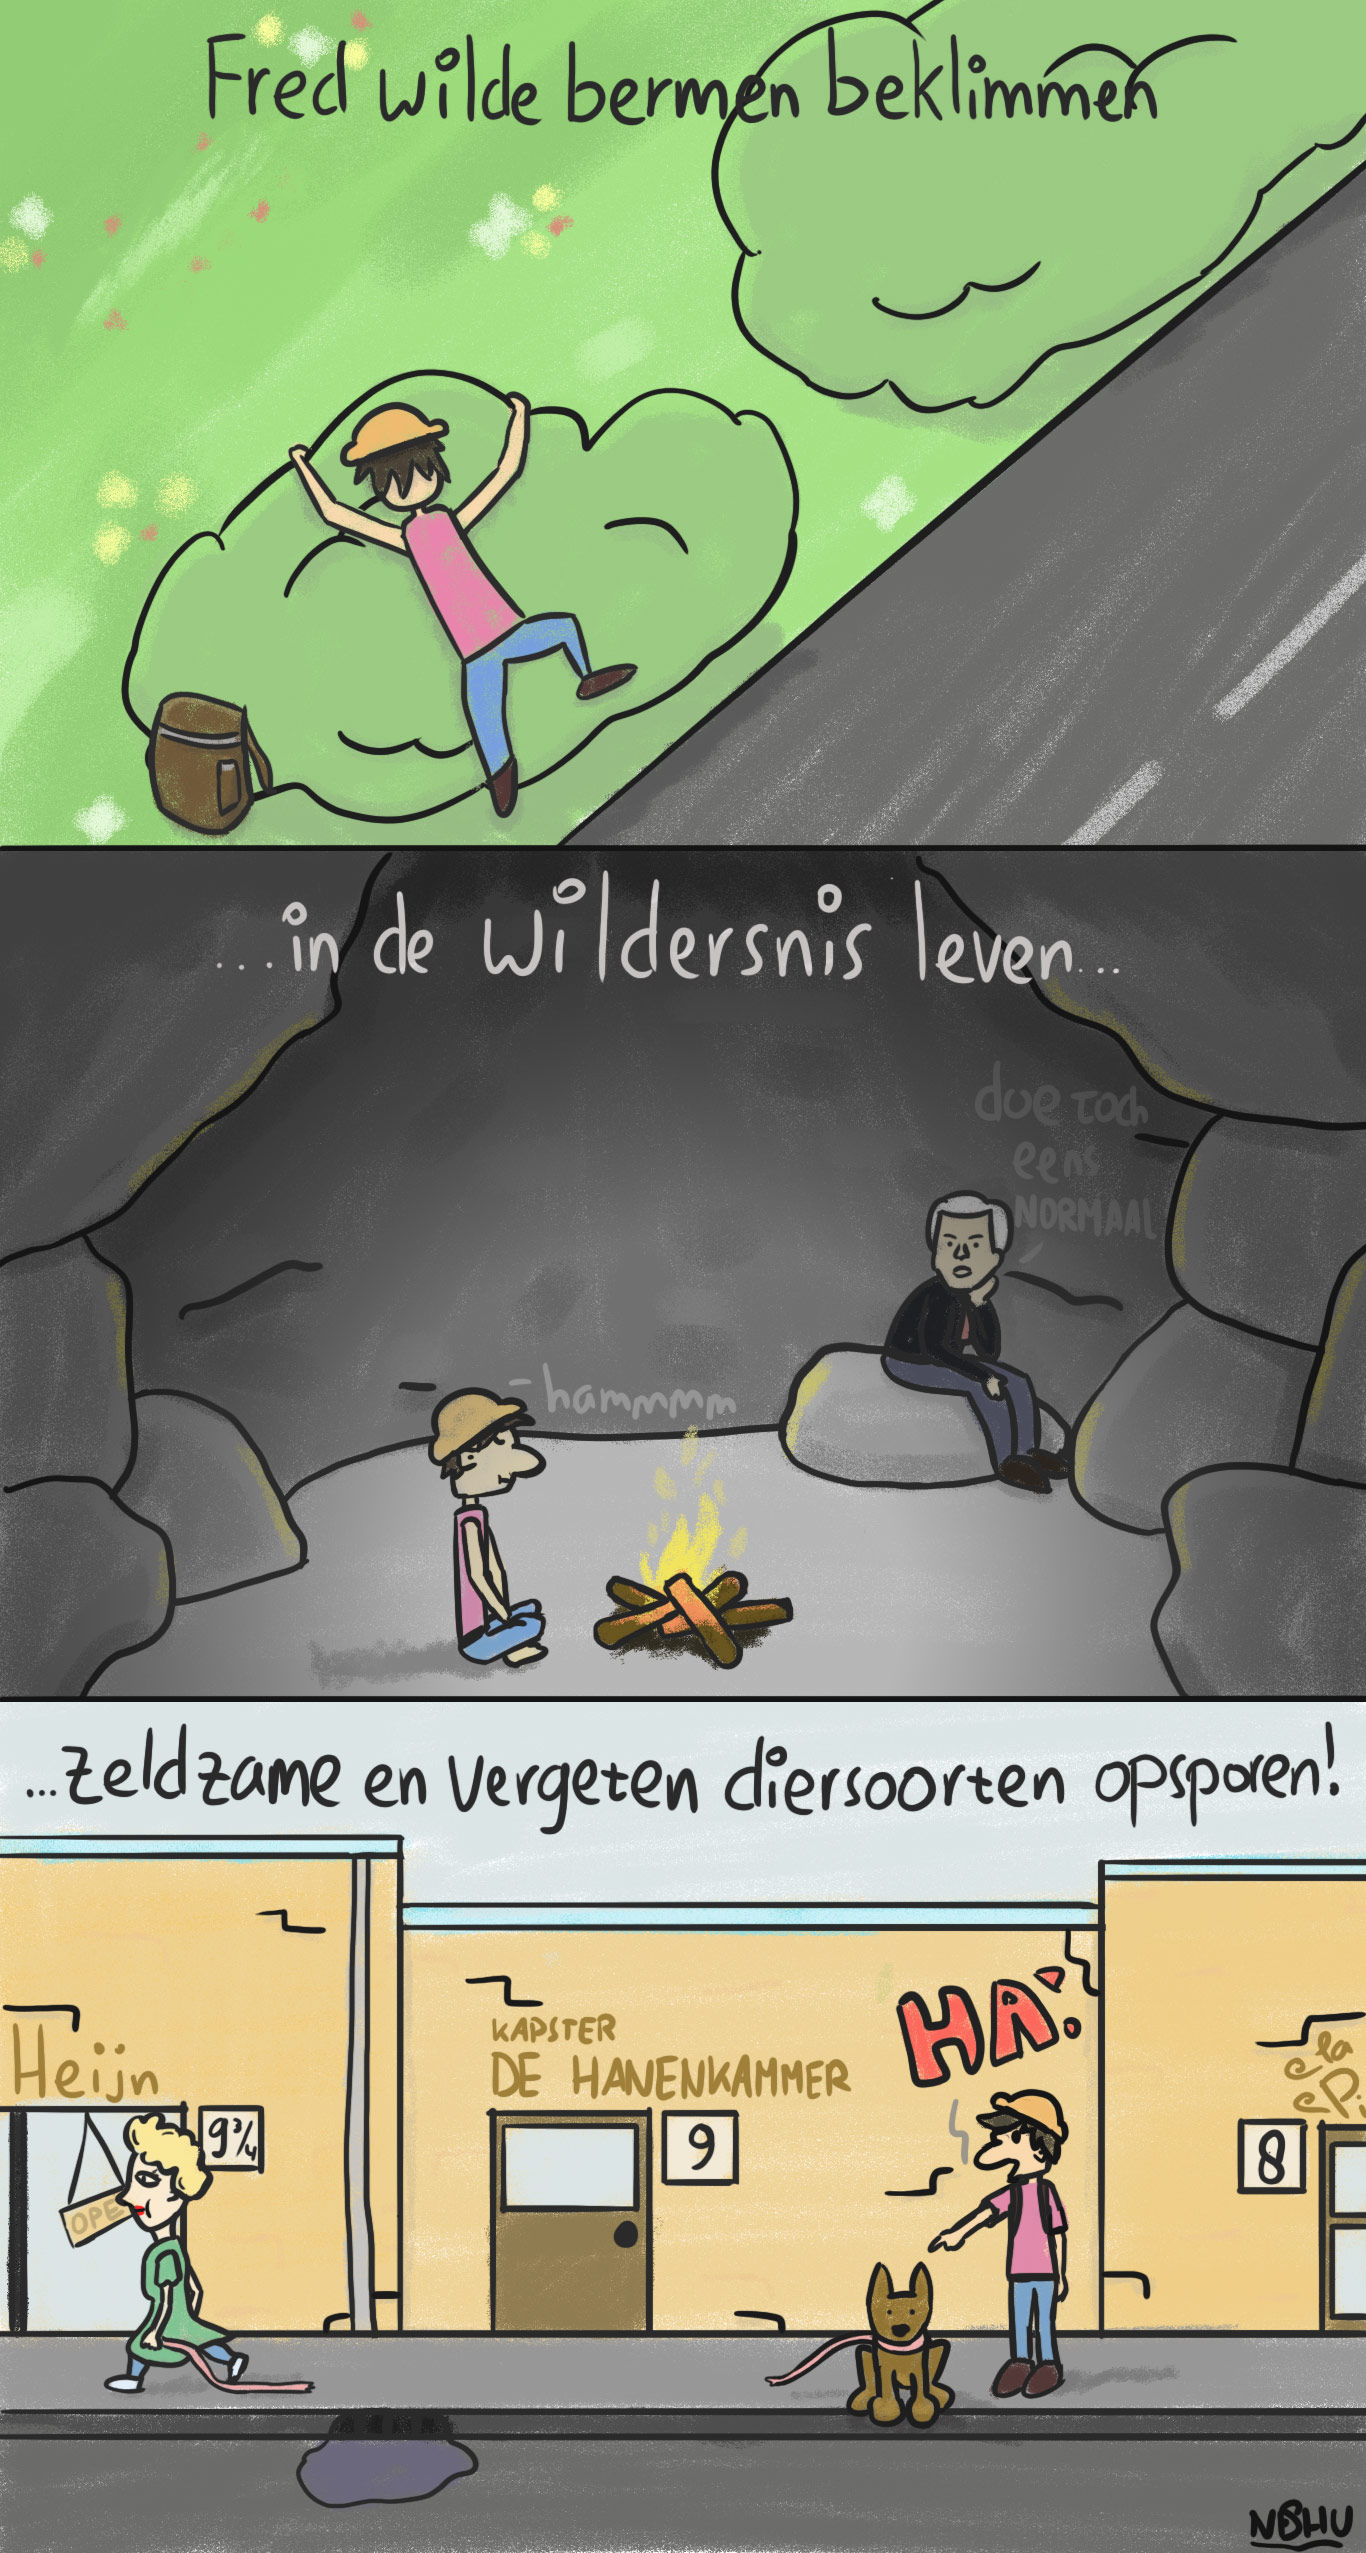 Fred wilde bermen beklimmen
...in de wildersnis leven...
doe toch
eens
NORMAAL
-hammmm
...zeldzame en vergeten diersoorten opsporen!
HA!
KAPSTER
DE HANENKAMMER
Heijn
la
Pi
9 3/4
9
8
OPE
NBHU